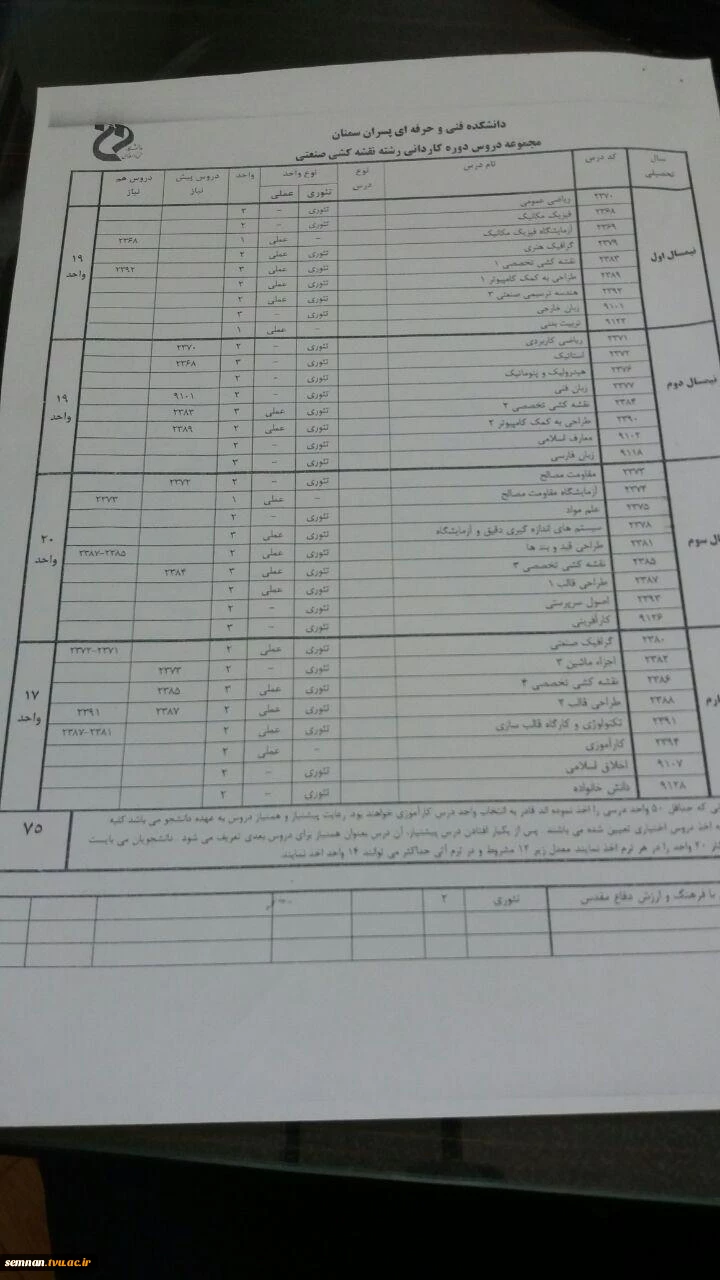 دانشکده فنی و حرفه ای پسران سمنان
مجموعه دروس دوره کاردانی رشته نقشه کشی صنعتی
سال تحصیلی کد درس نام درس نوع درس نوع واحد تئوری عملی واحد دروس پیش نیاز دروس هم نیاز
نیمسال اول
۲۳۷۰ ریاضی عمومی تئوری -
۲۳۶۸ فیزیک مکانیک تئوری - ۲
۲۳۶۹ آزمایشگاه فیزیک مکانیک - عملی ۱ ۲۳۶۸
۲۳۷۹ گرافیک هنری تئوری عملی ۲
۲۳۸۳ نقشه کشی تخصصی ۱ تئوری عملی ۳ ۲۳۹۲
۲۳۸۹ طراحی به کمک کامپیوتر ۱ تئوری عملی ۲
۲۳۹۲ هندسه ترسیمی صنعتی ۳ تئوری عملی ۲
۹۱۰۱ زبان خارجی تئوری - ۳
۹۱۲۳ تربیت بدنی - عملی ۱
۱۹ واحد
نیمسال دوم
۲۳۷۱ ریاضی کاربردی تئوری - ۲ ۲۳۷۰
۲۳۷۲ استاتیک تئوری - ۳ ۲۳۶۸
۲۳۷۶ هیدرولیک و پنوماتیک تئوری - ۲
۲۳۷۷ زبان فنی تئوری - ۲ ۹۱۰۱
۲۳۸۴ نقشه کشی تخصصی ۲ تئوری عملی ۳ ۲۳۸۳
۲۳۹۰ طراحی به کمک کامپیوتر ۲ تئوری عملی ۲ ۲۳۸۹
۹۱۰۲ معارف اسلامی تئوری - ۲
۹۱۱۸ زبان فارسی تئوری - ۳
۱۹ واحد
ال سوم
۲۳۷۳ مقاومت مصالح تئوری - ۲ ۲۳۷۲
۲۳۷۴ آزمایشگاه مقاومت مصالح - عملی ۱ ۲۳۷۳
۲۳۷۵ علم مواد تئوری - ۲
۲۳۷۸ سیستم های اندازه گیری دقیق و آزمایشگاه تئوری عملی ۳
۲۳۸۱ طراحی قید و بند ها تئوری عملی ۲ ۲۳۸۵-۲۳۸۷
۲۳۸۵ نقشه کشی تخصصی ۳ تئوری عملی ۳ ۲۳۸۴
۲۳۸۷ طراحی قالب ۱ تئوری عملی ۲
۲۳۹۳ اصول سرپرستی تئوری - ۲
۹۱۲۶ کارآفرینی تئوری - ۳
۲۰ واحد
ارم
۲۳۸۰ گرافیک صنعتی تئوری عملی ۲ ۲۳۷۱-۲۳۷۲
۲۳۸۲ اجزاء ماشین ۳ تئوری - ۲ ۲۳۷۳
۲۳۸۶ نقشه کشی تخصصی ۴ تئوری عملی ۳ ۲۳۸۵
۲۳۸۸ طراحی قالب ۲ تئوری عملی ۲ ۲۳۸۷ ۲۳۹۱
۲۳۹۱ تکنولوژی و کارگاه قالب سازی تئوری عملی ۲ ۲۳۸۱-۲۳۸۷
۲۳۹۴ کارآموزی - عملی ۲
۹۱۰۷ اخلاق اسلامی تئوری - ۲
۹۱۲۸ دانش خانواده تئوری - ۲
۱۷ واحد
که حداقل ۵۰ واحد درسی را اخذ نموده اند قادر به انتخاب واحد درس کارآموزی خواهند بود. رعایت پیشنیاز و همنیاز دروس به عهده دانشجو می باشد کلیه
اخذ دروس اختیاری تعیین شده می باشند. پس از یکبار افتادن درس پیشنیاز، آن درس بعنوان همنیاز برای دروس بعدی تعریف می شود. دانشجویان می بایست
۲۰ واحد را در هر ترم اخذ نمایند معدل زیر ۱۲ مشروط و در ترم آتی حداکثر می توانند ۱۴ واحد اخذ نمایند
۷۵
با فرهنگ و ارزش دفاع مقدس تئوری ۲
semnan.tvu.ac.ir